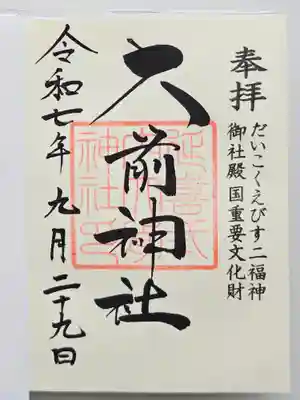 奉拝
だいこくえびす二福神
御社殿国重要文化財
大前神社
令和七年九月二十九日